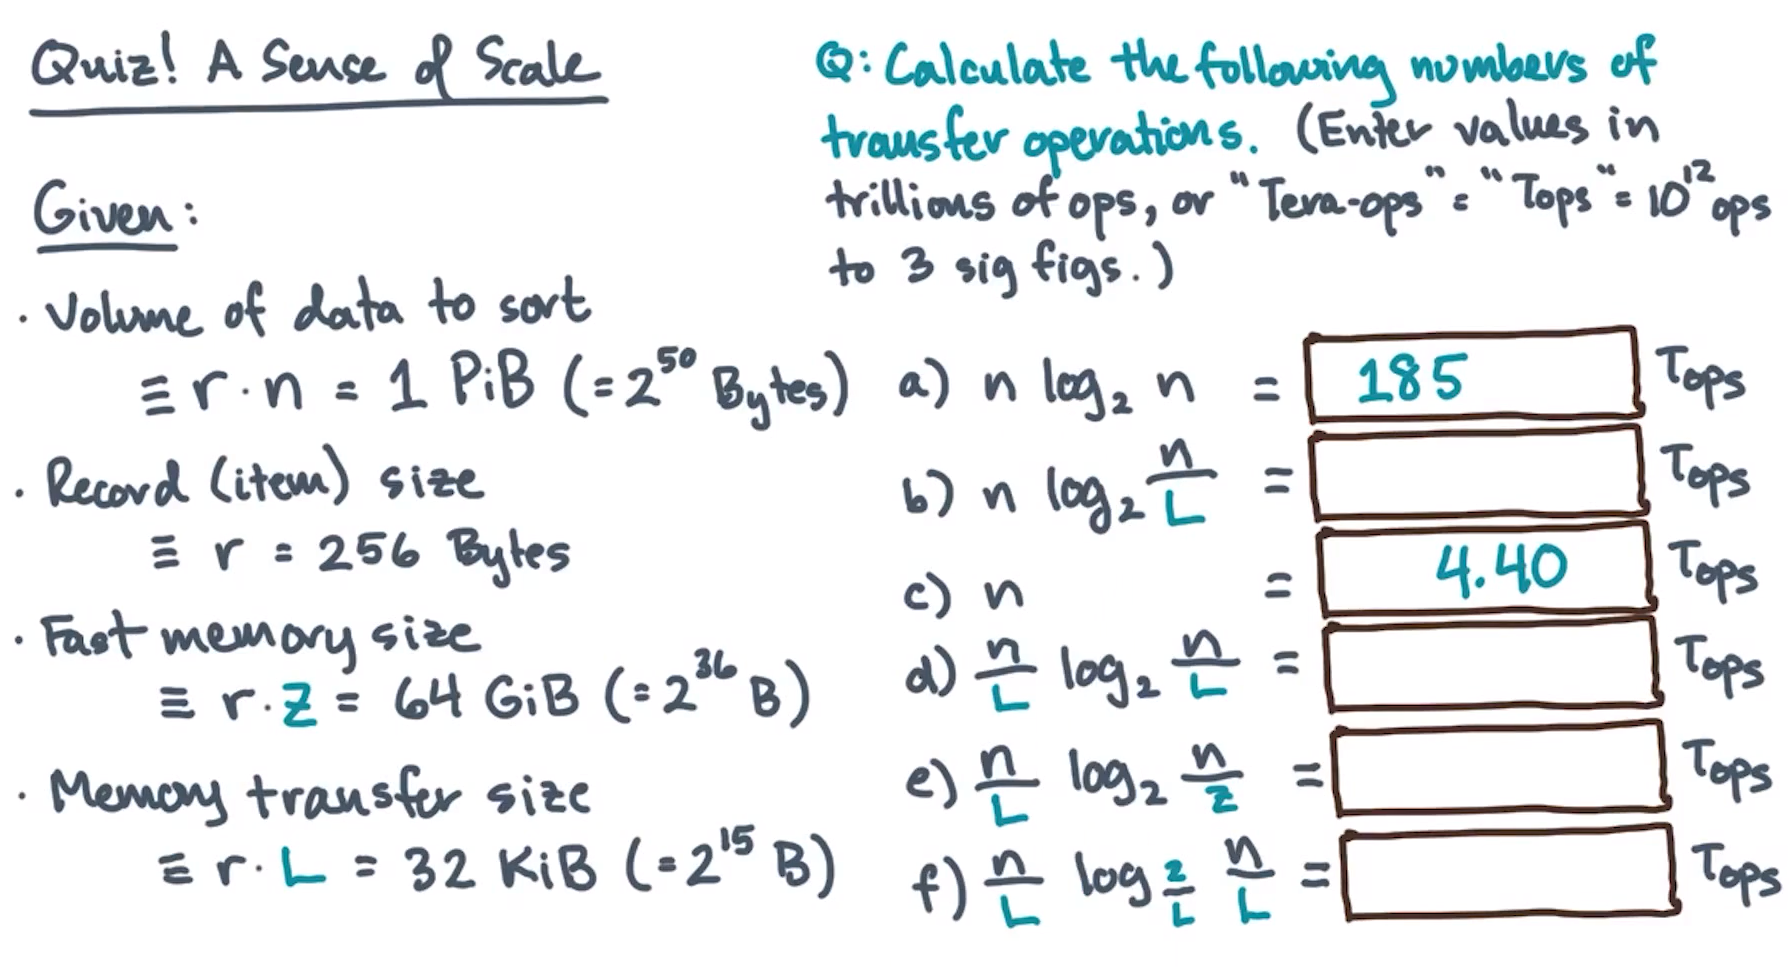 Quiz! A Sense of Scale
Given:
· Volume of data to sort
≡ r · n = 1 PiB (= 2^50 Bytes)
· Record (item) size
≡ r = 256 Bytes
· Fast memory size
≡ r · Z = 64 GiB (= 2^36 B)
· Memory transfer size
≡ r · L = 32 KiB (= 2^15 B)
Q: Calculate the following numbers of
transfer operations. (Enter values in
trillions of ops, or "Tera-ops" = "Tops" = 10^12 ops
to 3 sig figs.)
a) n log_2 n = 185 Tops
b) n log_2 n/L = Tops
c) n = 4.40 Tops
d) n/L log_2 n/L = Tops
e) n/L log_2 n/Z = Tops
f) n/L log_{Z/L} n/L = Tops